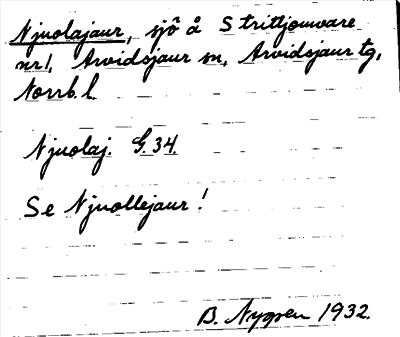 Njuolajaur, sjö å Stritjomvare
nr 1, Arvidsjaur sn, Arvidsjaur tg,
Norrb. l.
Njuolaj. G. 34.
Se Njuollejaur!
B. Nygren 1932.